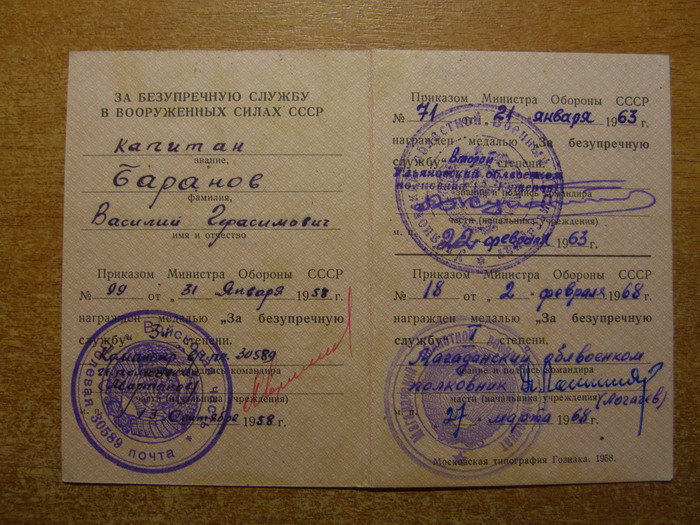 ЗА БЕЗУПРЕЧНУЮ СЛУЖБУ
В ВООРУЖЕННЫХ СИЛАХ СССР
Капитан
звание,
Баранов
фамилия,
Василий Герасимович
имя и отчество
Приказом Министра Обороны СССР
№ 99 от „31 Января 1958 г.
награжден медалью „За безупречную
службу“ 3й степени.
Командир в/ч пп. 30589
звание и подпись командира
части (начальника учреждения)
13 Сентября 1958 г.
Войсковая часть
полевая почта
30589
Приказом Министра Обороны СССР
№ 71 от „21 января 1963 г.
награжден медалью „За безупречную
службу“ второй степени.
Ульяновский облвоенком
полковник
звание и подпись командира
части (начальника учреждения)
м. п. 22 февраля 1963 г.
Приказом Министра Обороны СССР
№ 18 от „2 февраля 1968 г.
награжден медалью „За безупречную
службу“ I степени.
Магаданский облвоенком
полковник
звание и подпись командира
части (начальника учреждения)
(Логачёв)
м. п. 27 марта 1968 г.
Московская типография Гознака. 1958.